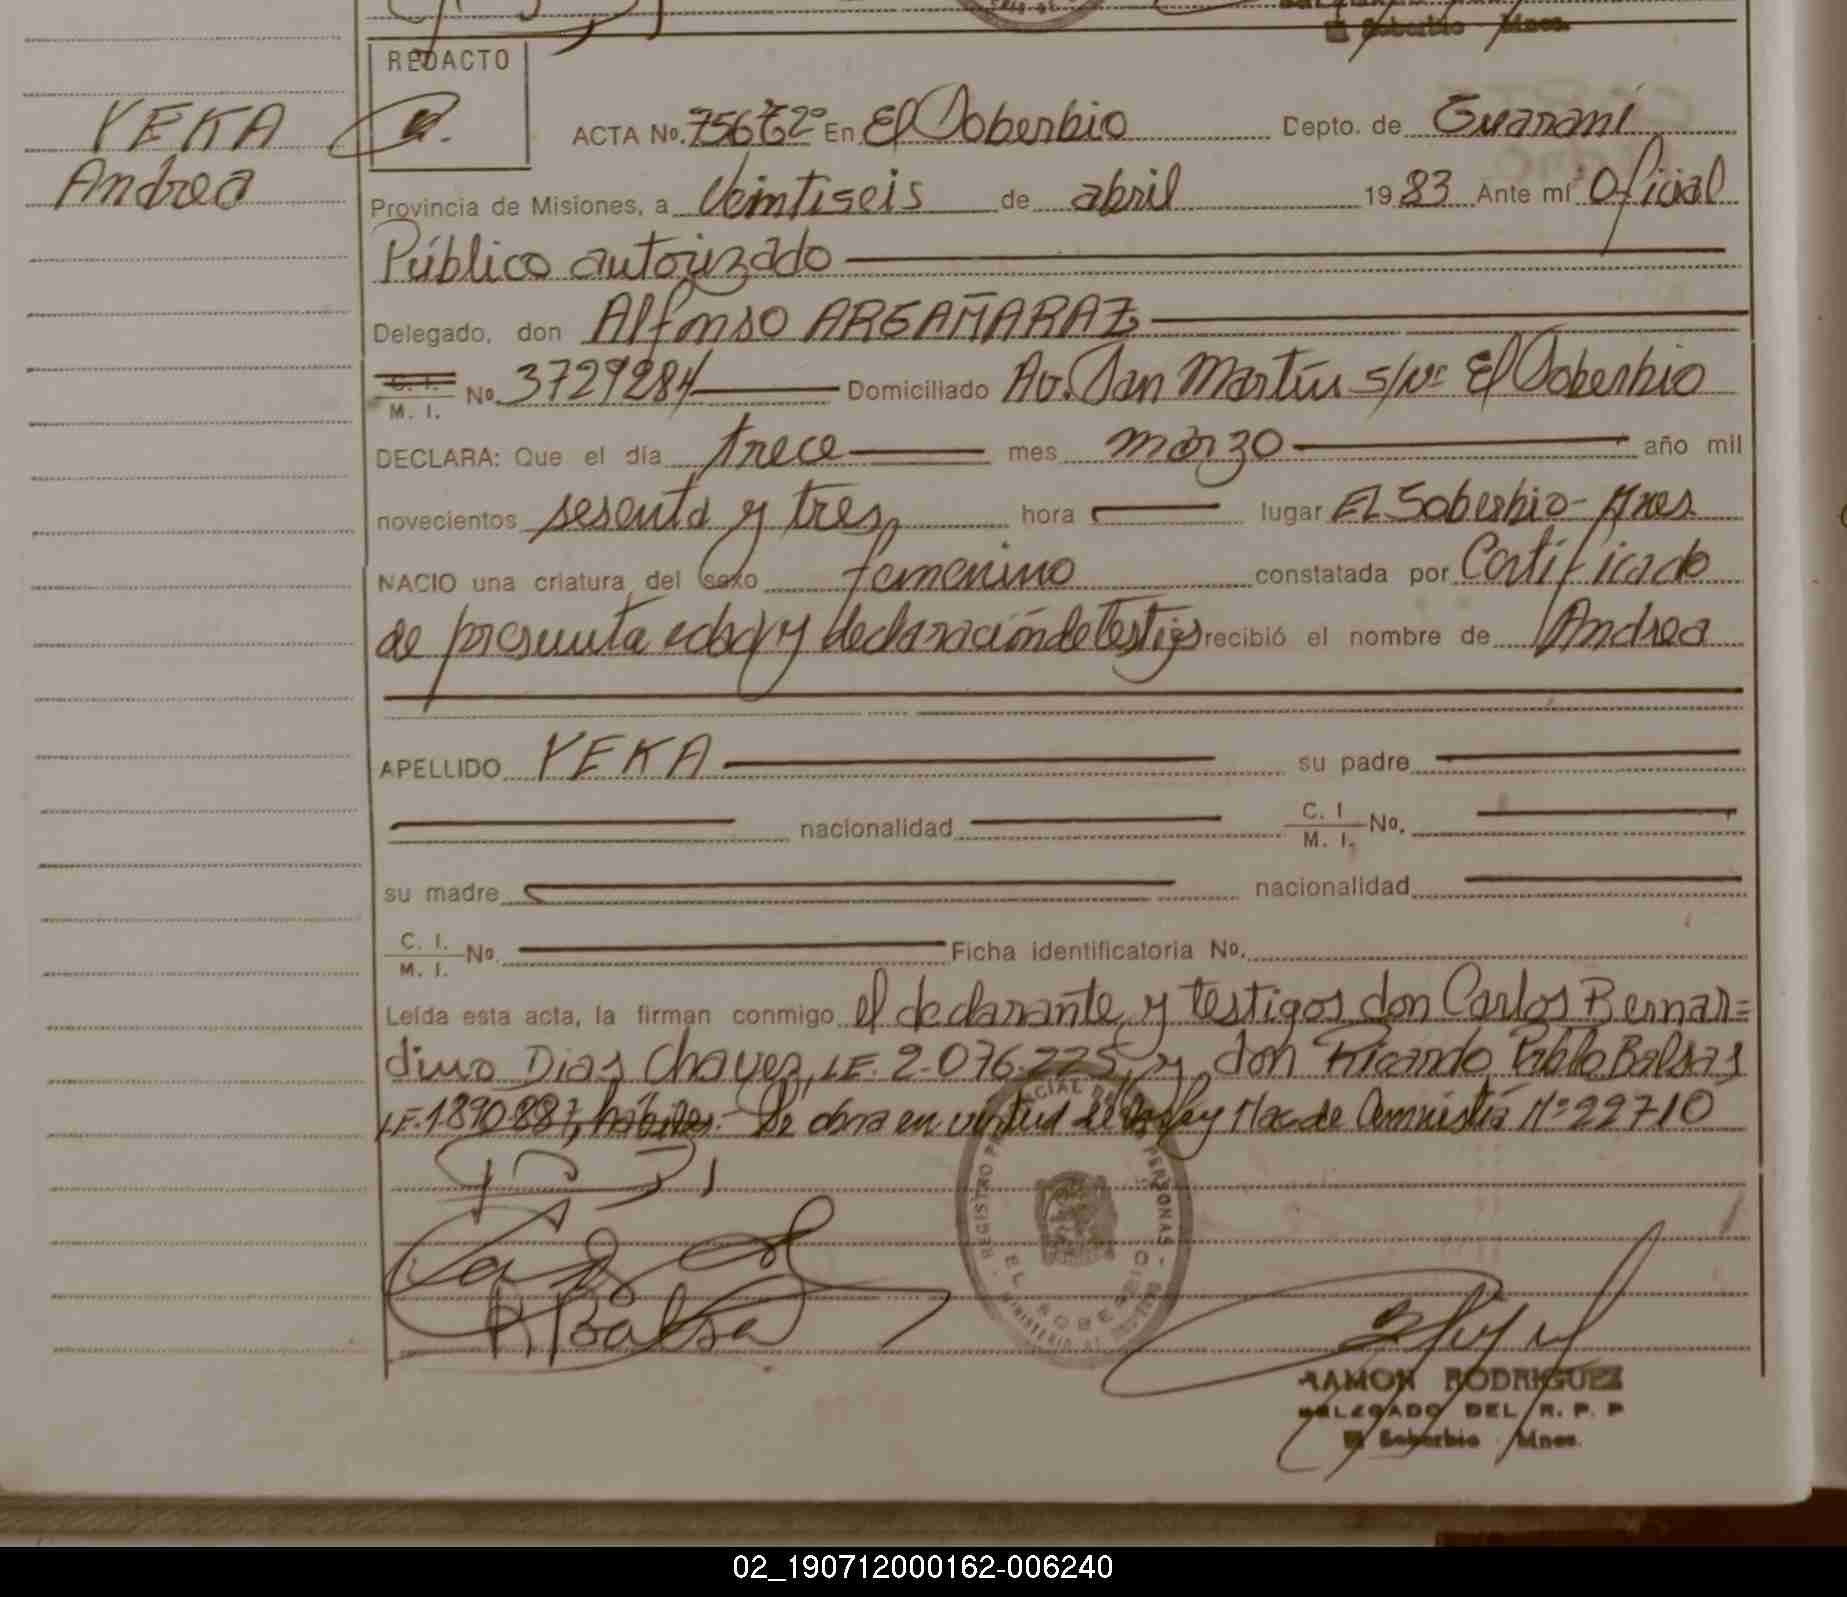 REDACTO
YEKA
Andrea
ACTA No. 756 t 2º En El Soberbio Depto. de Guaraní
Provincia de Misiones, a Veintiseis de abril 1983 Ante mí Oficial
Público autorizado
Delegado, don Alfonso ARGAÑARAZ
C. I. M. I. No. 3729284 Domiciliado Av. San Martín s/nº El Soberbio
DECLARA: Que el día trece mes marzo año mil
novecientos sesenta y tres, hora lugar El Soberbio - Mnes.
NACIO una criatura del sexo femenino constatada por Certificado
de presunta edad y declaración de testigos recibió el nombre de Andrea
APELLIDO YEKA su padre
nacionalidad C. I. M. I. No.
su madre nacionalidad
C. I. M. I. No. Ficha identificatoria No.
Leída esta acta, la firman conmigo el declarante y testigos don Carlos Bernar=
dino Dias Chavez, L.E. 2.076.225, y don Ricardo Pablo Balsas
L.E. 1890887, hábiles.- Se obra en virtud de la Ley Nac. de Amnistía Nº 22710
REGISTRO PERSONAS
EL SOBERBIO
R Balsa
RAMON RODRIGUEZ
DELEGADO DEL R. P. P
El Soberbio Mnes.
02_190712000162-006240